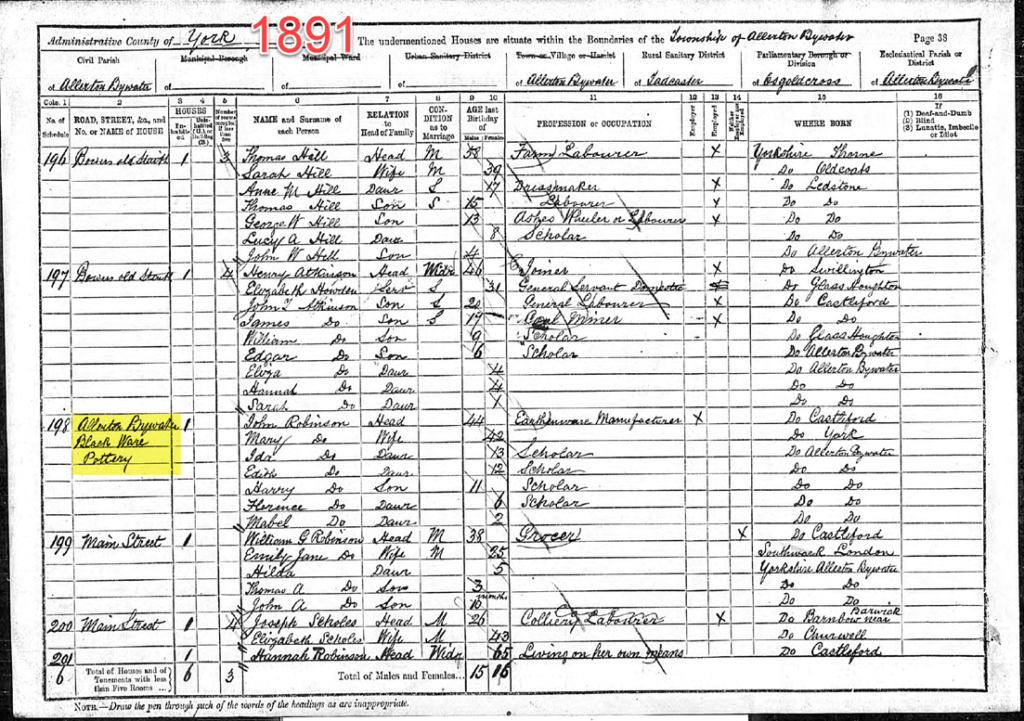 1891
Administrative County of York The undermentioned Houses are situate within the Boundaries of the Township of Allerton Bywater Page 38
Civil Parish Municipal Borough Municipal Ward Urban Sanitary District Town or Village or Hamlet Rural Sanitary District Parliamentary Borough or Division Ecclesiastical Parish or District
of Allerton Bywater of of of of Allerton Bywater of Tadcaster of Osgoldcross of Allerton Bywater
Cols. 1 2 3 4 5 6 7 8 9 10 11 12 13 14 15 16
No. of Schedule ROAD, STREET, &c., and No. or NAME of HOUSE HOUSES NAME and Surname of each Person RELATION to Head of Family CONDITION as to Marriage AGE last Birthday of Males Females PROFESSION or OCCUPATION Employer Employed WHERE BORN If (1) Deaf-and-Dumb (2) Blind (3) Lunatic, Imbecile or Idiot
196 Bowers old 1 3 Thomas Hill Head M 38 Farm Labourer X Yorkshire Thorne
Sarah Hill Wife M 39 Do Oldcoats
Anne M Hill Daur S 17 Dressmaker X Do Ledstone
Thomas Hill Son S 15 Labourer X Do Do
George W Hill Son 13 Ashes Labourer X Do Do
Lucy A Hill Daur 8 Scholar Do Do
John W Hill Son 4 Do Allerton Bywater
197 Bowers old 1 4 Henry Atkinson Head Widr 46 Joiner X Do Swillington
Elizabeth Howden Serv S 31 General Servant Domestic Do Glass Houghton
John T Atkinson Son S 20 General Labourer X Do Castleford
James Do Son S 19 Coal Miner X Do Do
William Do Son 9 Scholar Do Glass Houghton
Edgar Do Son 6 Scholar Do Allerton Bywater
Eliza Do Daur 4 Do Allerton Bywater
Hannah Do Daur 4 Do Do
Sarah Do Daur Do Do
198 Allerton Bywater 1 John Robinson Head 44 Earthenware Manufacturer X Do Castleford
Black Ware Mary Do Wife 42 Do York
Pottery Ida Do Daur 13 Scholar Do Allerton Bywater
Edith Do Daur 12 Scholar Do Do
Harry Do Son 11 Scholar Do Do
Florence Do Daur 6 Scholar Do Do
Mabel Do Daur 2 Do Do
199 Main Street 1 William G Robinson Head M 38 Grocer X Do Castleford
Emily Jane Do Wife M 25 Southwark London
Hilda Daur 5 Yorkshire Allerton Bywater
Thomas A Do Son 3 Do Do
John A Do Son 10 months Do Do
200 Main Street 1 4 Joseph Scholes Head M 26 Colliery Labourer X Do Barnbow near Barwick
Elizabeth Scholes Wife M 43 Do Churwell
201 1 Hannah Robinson Head Widw 65 Living on her own means Do Castleford
6 Total of Houses and of Tenements with less than Five Rooms ... 6 3 Total of Males and Females... 15 16
NOTE.—Draw the pen through such of the words of the headings as are inappropriate.